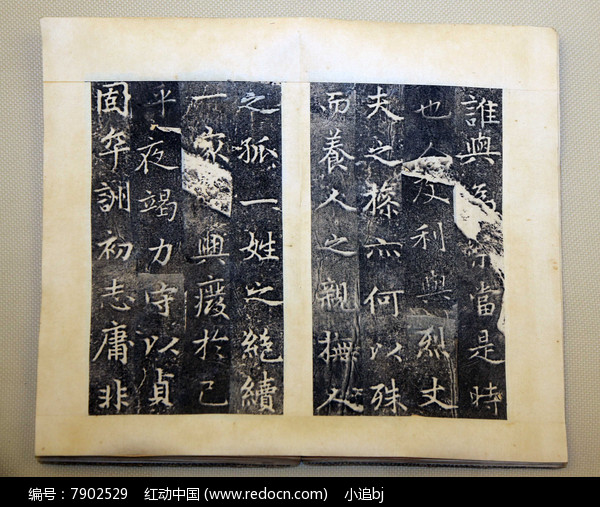 誰與為 當是時
也人友利與烈丈
夫之操亦何以殊
而養人之親撫人
之孤一姓之絕續
一家 興廢於己
平夜竭力守以貞
固年訓初志庸非
编号：7902529 红动中国 (www.redocn.com) 小追bj